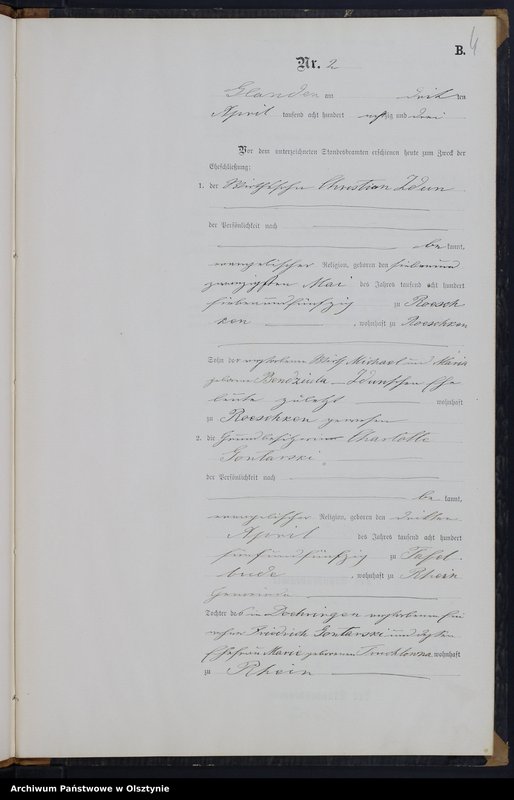 B. 4
Nr. 2
Glanden am drit ten
April tausend acht hundert achtzig und drei
Vor dem unterzeichneten Standesbeamten erschienen heute zum Zweck der
Eheschließung:
1. der Wirthssohn Christian Zdun
der Persönlichkeit nach
be kannt,
evangelischer Religion, geboren den siebenund
zwanzigsten Mai des Jahres tausend acht hundert
siebenundfünfzig zu Roesch
ken , wohnhaft zu Roeschken
Sohn der verstorbenen Wirth Michael und Marie
geborene Bendzulla - Zdunschen Ehe
leute zuletzt wohnhaft
zu Roeschken gewesen
2. die Grundbesitzerin Charlotte
Gontarski
der Persönlichkeit nach
be kannt,
evangelischer Religion, geboren den dritten
April des Jahres tausend acht hundert
fünfundfünzig zu Tafel
bude , wohnhaft zu Rhein
Gemeinde
Tochter des in Doehringen verstorbenen Ein
wohner Friedrich Gontarski und
Ehefrau Marie geborenen wohnhaft
zu Rhein
Archiwum Państwowe w Olsztynie